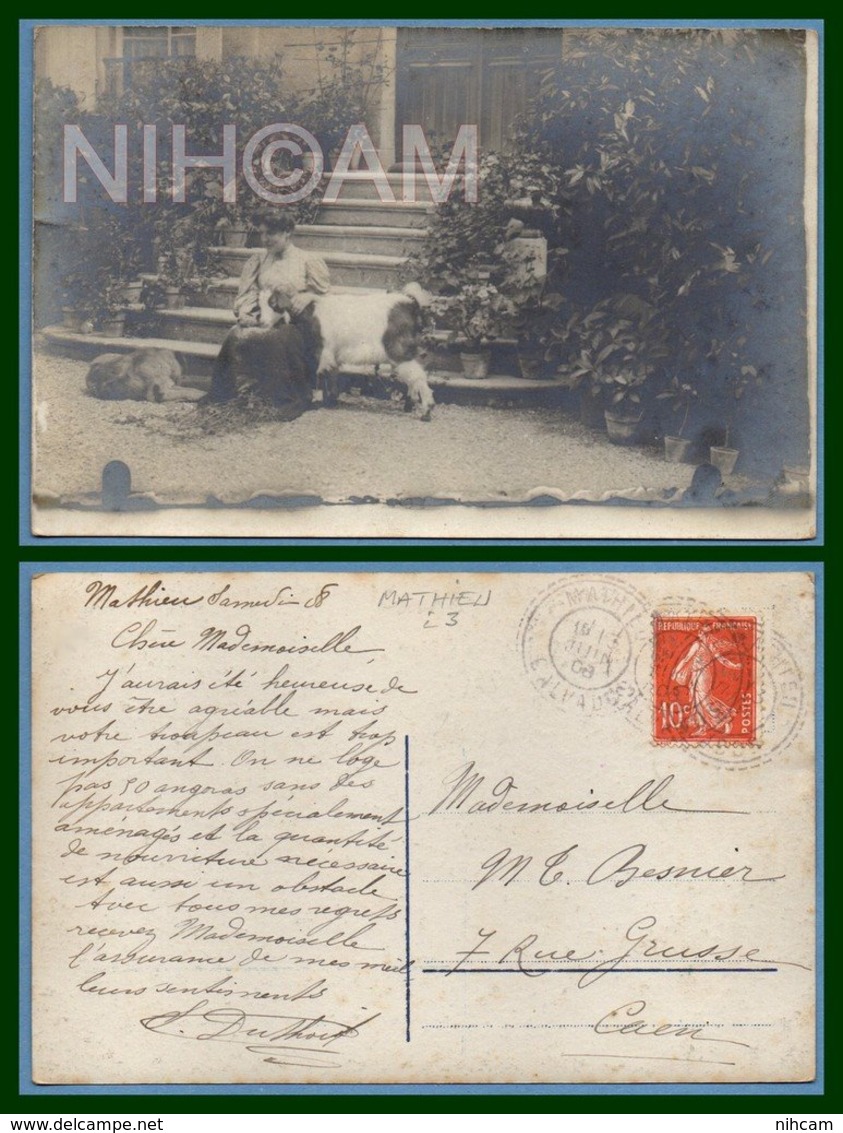 NIH©AM
Mathieu Samedi 08
MATHIEU
Chère Mademoiselle
J'aurais été heureuse de
vous être agréable mais
votre troupeau est trop
important. On ne loge
pas 50 angoras sans des
appartements spécialement
aménagés et la quantité
de nourriture nécessaire
est aussi un obstacle
Avec tous mes regrets
recevez Mademoiselle
l'assurance de mes meil
leurs sentiments
S. Duthoit
MATHIEU
JUIN
08
CALVADOS
REPUBLIQUE FRANÇAISE
10c
POSTES
Mademoiselle
M T. Besnier
7 Rue Grusse
Caen
www.delcampe.net
nihcam